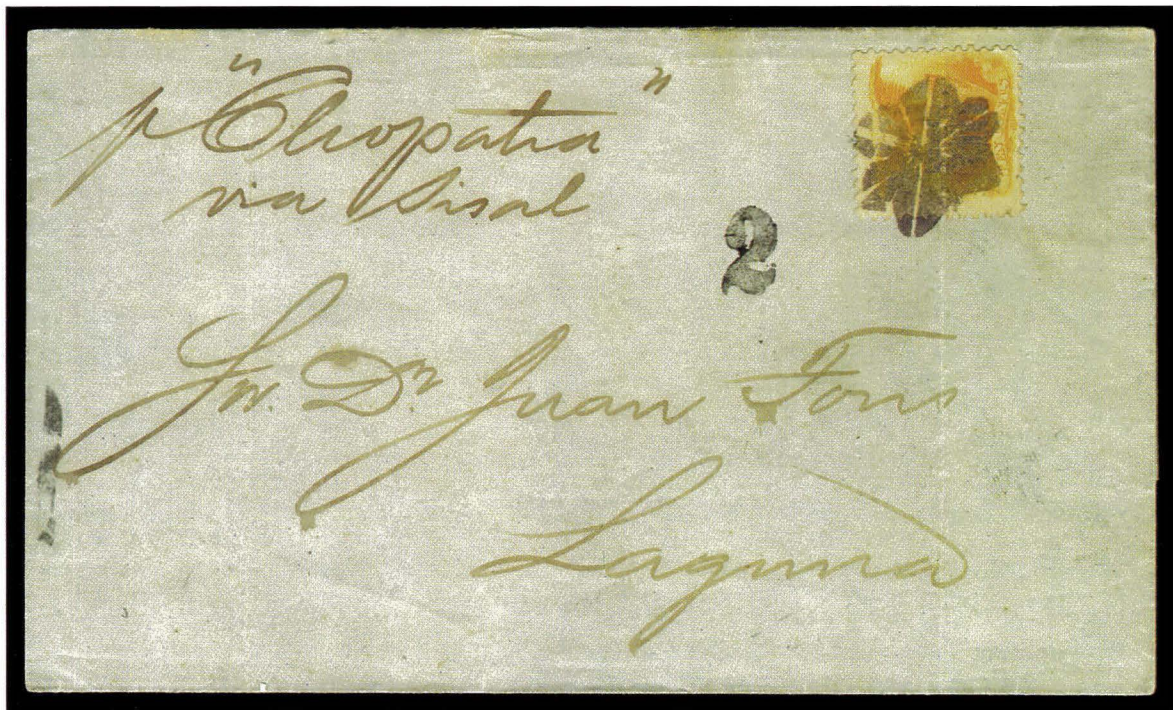 p "Cleopatra"
via Sisal
2
Sor. Dn Juan Fons
Laguna